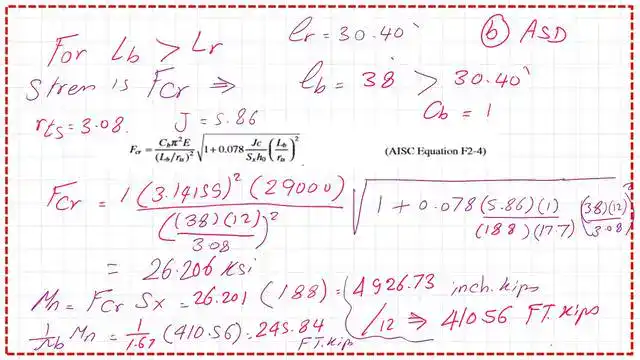 lr = 30.40'
(b) ASD
For Lb > Lr
Stress is Fcr ⇒ lb = 38' > 30.40'
Cb = 1
rts = 3.08. J = 5.86
Fcr = Cbπ²E / (Lb/rts)² √(1 + 0.078 Jc / Sxh0 (Lb / rts)²) (AISC Equation F2-4)
Fcr = 1 (3.14159)² (29000) / ((38)(12) / 3.08)² √(1 + 0.078 (5.86)(1) / (188)(17.7) ((38)(12) / 3.08)²)
= 26.206 Ksi
Mn = Fcr Sx = 26.201 (188) = 4926.73 inch.kips
/12 ⇒ 41056 FT.kips
1/Ωb Mn = 1/1.67 (410.56) = 245.84 FT.kips